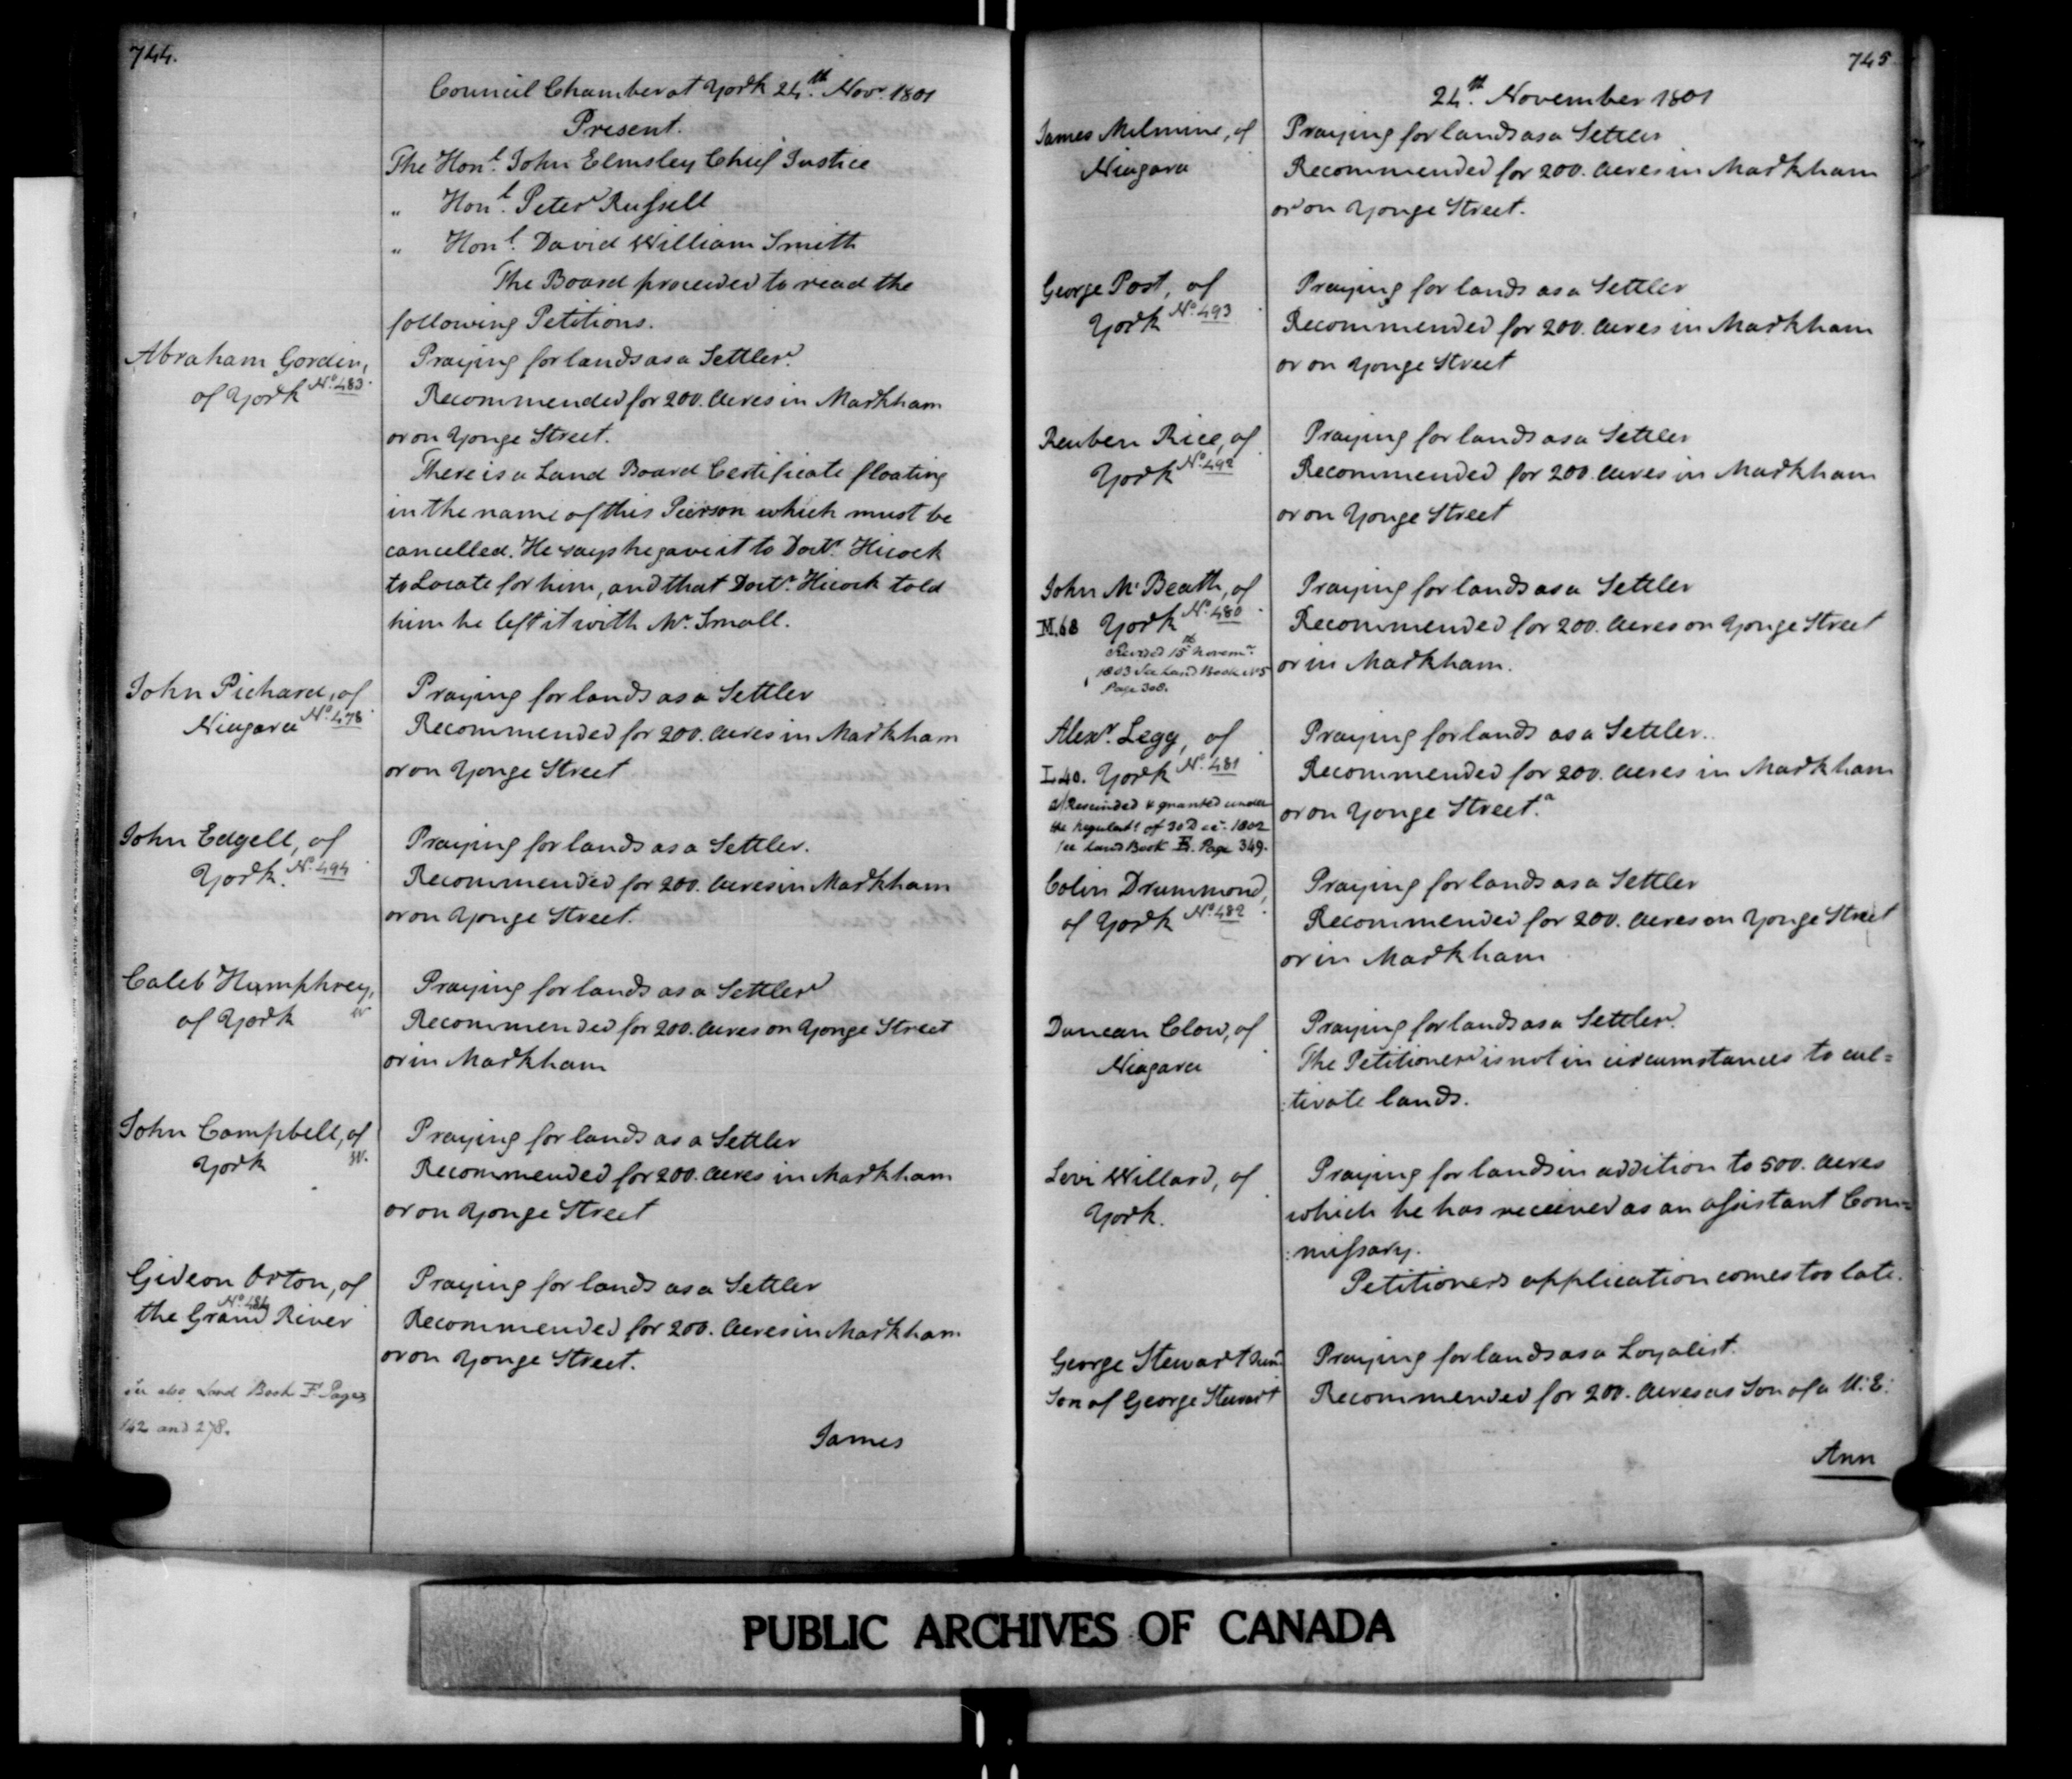 744.
Council Chamber at York 24th. Novr. 1801
Present.
The Honl. John Elmsley Chief Justice
„ Honl. Peter Russell
„ Honl. David William Smith
The Board proceeded to read the
following Petitions.
Abraham Gordin,
of York No. 483.
Praying for lands as a Settler.
Recommended for 200. Acres in Markham
or on Yonge Street.
There is a Land Board Certificate floating
in the name of this Pierson which must be
cancelled. He says he gave it to Doctr. Hicock
to Locate for him, and that Doctr. Hicock told
him he left it with Mr. Small.
John Pichard, of
Niagara No. 478.
Praying for lands as a Settler
Recommended for 200. Acres in Markham
or on Yonge Street
John Edgell, of
York. No. 494
Praying for lands as a Settler.
Recommended for 200. Acres in Markham
or on Yonge Street.
Caleb Humphrey,
of York W
Praying for lands as a Settler
Recommended for 200. Acres on Yonge Street
or in Markham
John Campbell, of
York W.
Praying for lands as a Settler
Recommended for 200. Acres in Markham
or on Yonge Street
Gideon Orton, of
No. 484
the Grand River
Praying for lands as a Settler
Recommended for 200. Acres in Markham
or on Yonge Street.
See also Land Book F. Pages
142 and 278.
James
745
24th. November 1801
James Milmine, of
Niagara
Praying for lands as a Settler
Recommended for 200. Acres in Markham
or on Yonge Street.
George Post, of
York No. 493
Praying for lands as a Settler
Recommended for 200. Acres in Markham
or on Yonge Street
Reuben Rice, of
York No. 492
Praying for lands as a Settler
Recommended for 200. Acres in Markham
or on Yonge Street
John Mc Beath, of
M.68 York No. 480
Revived 15th Novemr.
1803 See Land Book No 5
Page 308.
Praying for lands as a Settler
Recommended for 200. Acres on Yonge Street
or in Markham.
Alexr. Legg, of
L.40. York No. 481
a/ Rescinded & granted under
the Regulatt. of 30 Dec. 1802
See Land Book E. Page 349.
Praying for lands as a Settler.
Recommended for 200. Acres in Markham
or on Yonge Street.a
Colin Drummond,
of York No. 482
Praying for lands as a Settler
Recommended for 200. Acres on Yonge Street
or in Markham
Duncan Clow, of
Niagara
Praying for lands as a Settler.
The Petitioner is not in circumstances to cul=
:tivate lands.
Levi Willard, of
York.
Praying for lands in addition to 500. Acres
which he has received as an assistant Com=
:missary.
Petitioners application comes too late.
George Stewart Junr.
Son of George Stewart
Praying for lands as a Loyalist.
Recommended for 200. Acres as Son of a U: E:
Ann
PUBLIC ARCHIVES OF CANADA